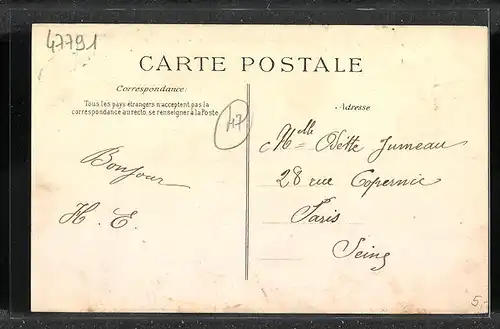 47791
CARTE POSTALE
Correspondance:
Tous les pays étrangers n'acceptent pas la
correspondance au recto, se renseigner à la Poste
47
Adresse
Bonjour
H. E.
Mlle Odette Jumeau
28 rue Copernic
Paris
Seine
5,-